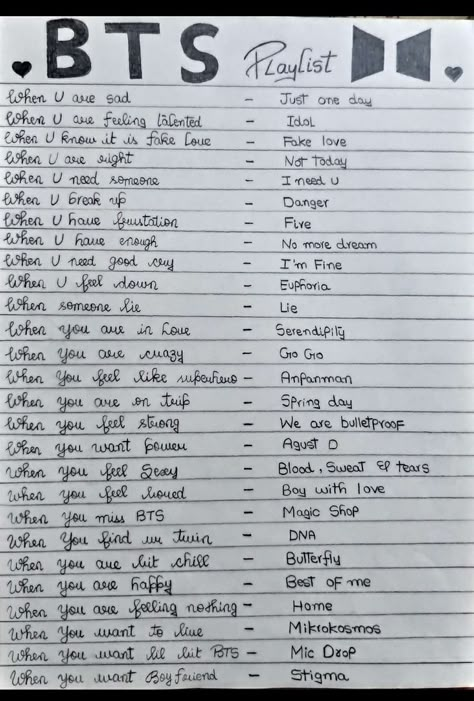 BTS Playlist
When U are sad - Just one day
When U are feeling talented - Idol
When U know it is fake love - Fake love
When U are right - Not today
When U need someone - I need U
When U break up - Danger
When U have frustation - Fire
When U have enough - No more dream
When U need good cry - I'm Fine
When U feel down - Euphoria
When someone lie - Lie
When you are in love - Serendipity
When you are crazy - Go Go
When you feel like superhero - Anpanman
When you are on trip - Spring day
When you feel strong - We are bulletproof
When you want power - Agust D
When you feel Sexy - Blood, Sweat & tears
When you feel loved - Boy with love
When you miss BTS - Magic Shop
When you find ur twin - DNA
When you are bit chill - Butterfly
When you are happy - Best of me
When you are feeling nothing - Home
When you want to live - Mikrokosmos
When you want lil bit BTS - Mic Drop
When you want Boyfriend - Stigma